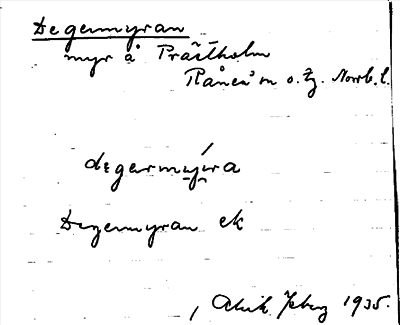 Degermyran
myr å Prästholm
Råneå sn o. tg. Norrb. l.
degermýra
Degermyran ek
1935.